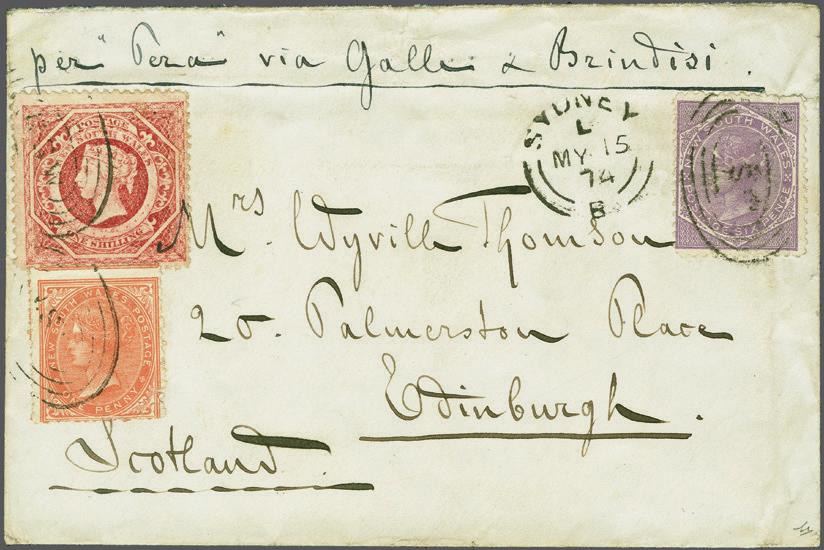 per "Pera" via Galle & Brindisi.
POSTAGE
SOUTH WALES
ONE SHILLING
SYDNEY
L
MY 15
74
B
NEW SOUTH WALES
POSTAGE SIXPENCE
Mrs Wyville Thomson
20. Palmerston Place
Edinburgh.
NEW SOUTH WALES POSTAGE
PENNY
Scotland.